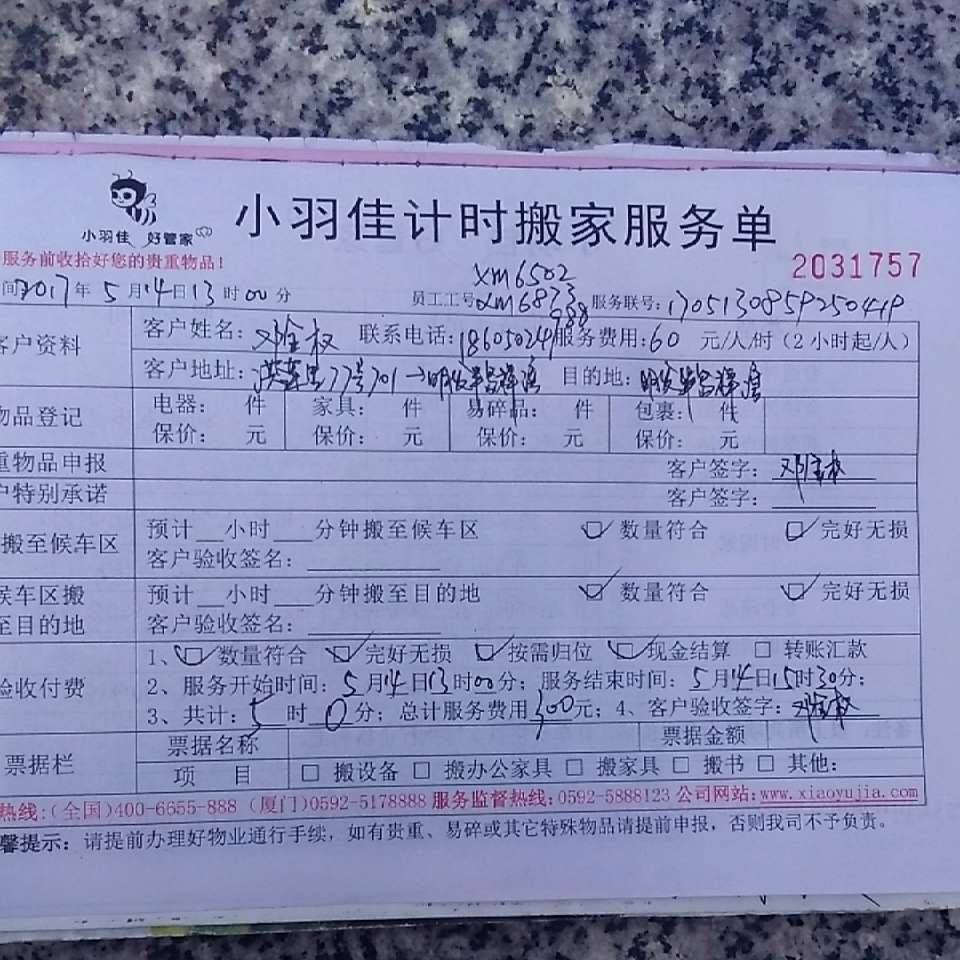 小羽佳 好管家
小羽佳计时搬家服务单
服务前收拾好您的贵重物品!
2031757
xm6502
间2017年5月14日13时00分 员工工号xm6873 988 服务联号:1705130859250419
客户资料 客户姓名: 邓金权 联系电话:1860502419 服务费用:60 元/人/时(2小时起/人)
客户地址: 77号701→明发半岛祥湾 目的地:明发半岛祥湾
物品登记 电器: 件 家具: 件 易碎品: 件 包裹: 件
保价: 元 保价: 元 保价: 元 保价: 元
重物品申报 客户签字:邓金权
户特别承诺 客户签字:
搬至候车区 预计__小时___分钟搬至候车区 ☑数量符合 ☑完好无损
客户验收签名:
候车区搬至目的地 预计__小时___分钟搬至目的地 ☑数量符合 ☑完好无损
客户验收签名:
验收付费 1、☑数量符合 ☑完好无损 ☑按需归位 ☑现金结算 □ 转账汇款
2、服务开始时间:5月14日13时00分;服务结束时间:5月14日15时30分;
3、共计:5时0分;总计服务费用300元;4、客户验收签字:邓金权
票据栏 票据名称 票据金额
项 目 □ 搬设备 □ 搬办公家具 □ 搬家具 □ 搬书 □ 其他:
热线:(全国)400-6655-888 (厦门)0592-5178888 服务监督热线:0592-5888123 公司网站:www.xiaoyujia.com
馨提示:请提前办理好物业通行手续，如有贵重、易碎或其它特殊物品请提前申报，否则我司不予负责。